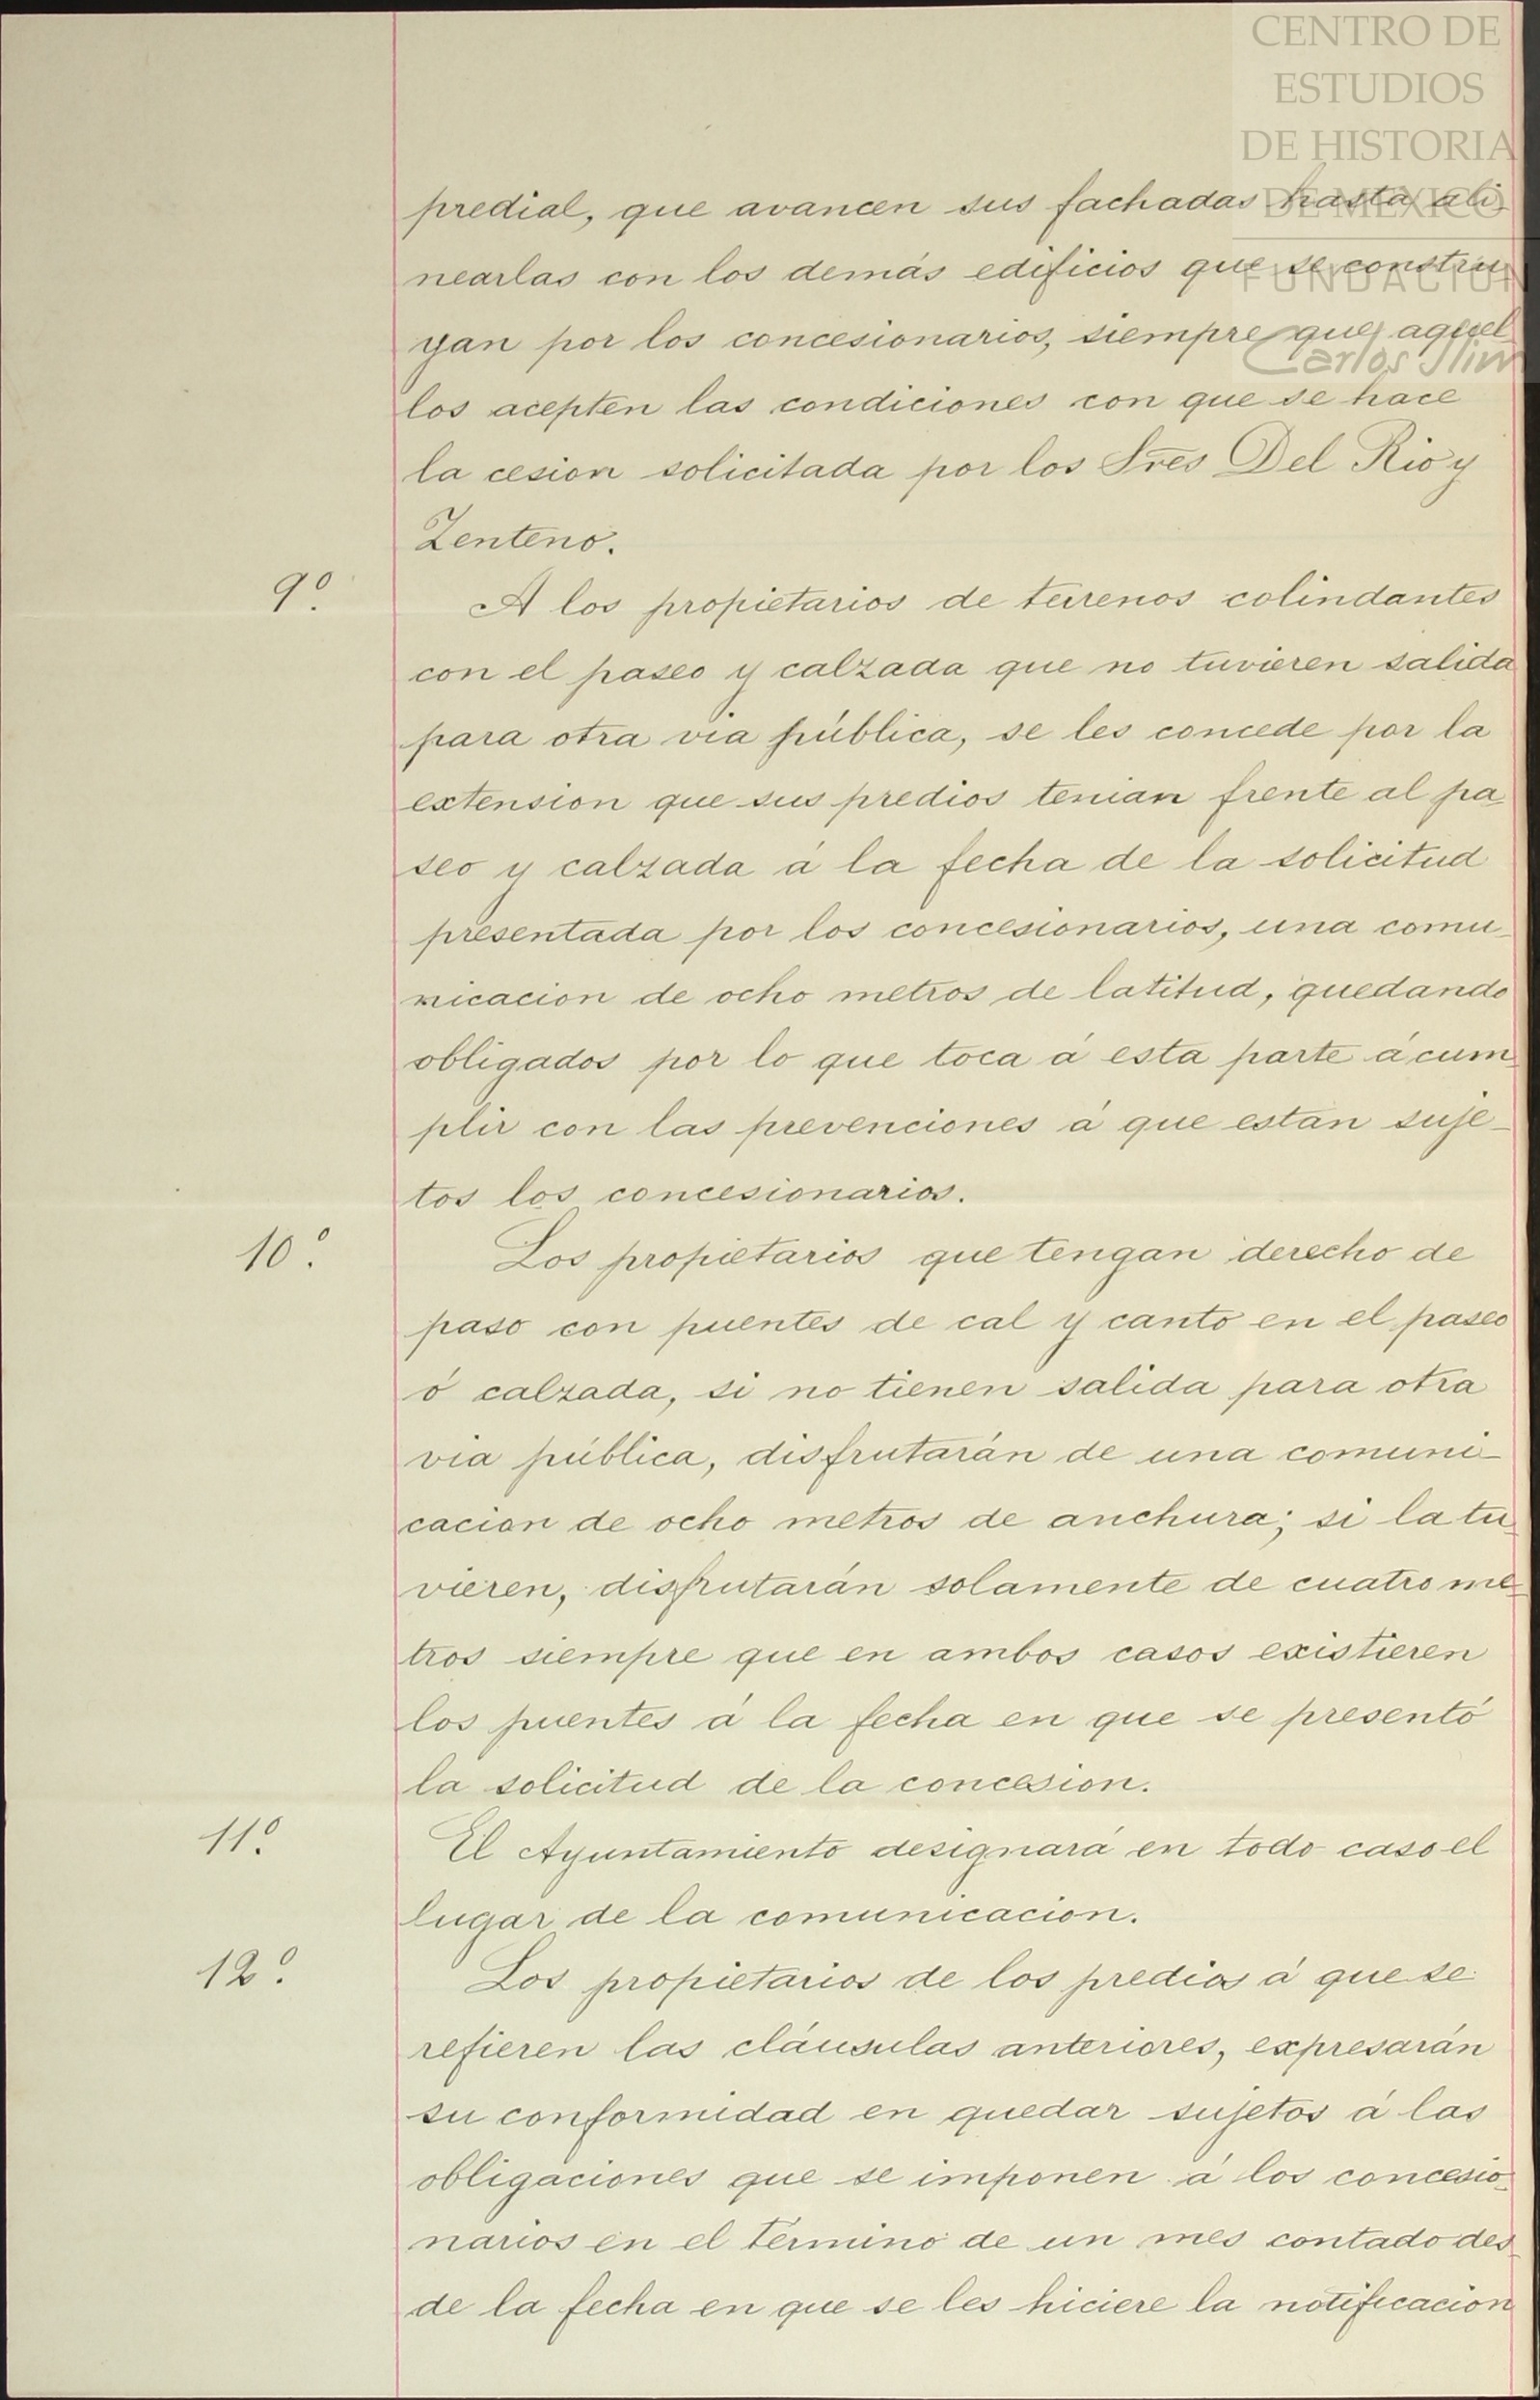 CENTRO DE
ESTUDIOS
DE HISTORIA
DE MÉXICO
FUNDACION
Carlos Slim
predial, que avancen sus fachadas hasta ali-
nearlas con los demás edificios que se constru-
yan por los concesionarios, siempre que aquel-
los acepten las condiciones con que se hace
la cesion solicitada por los Sres Del Rio y
Zenteno.
9º. A los propietarios de terrenos colindantes
con el paseo y calzada que no tuvieren salida
para otra via pública, se les concede por la
extension que sus predios tenian frente al pa-
seo y calzada á la fecha de la solicitud
presentada por los concesionarios, una comu-
nicacion de ocho metros de latitud, quedando
obligados por lo que toca á esta parte á cum-
plir con las prevenciones á que estan suje-
tos los concesionarios.
10º. Los propietarios que tengan derecho de
paso con puentes de cal y canto en el paseo
ó calzada, si no tienen salida para otra
via pública, disfrutarán de una comuni-
cacion de ocho metros de anchura; si la tu-
vieren, disfrutarán solamente de cuatro me-
tros siempre que en ambos casos existieren
los puentes á la fecha en que se presentó
la solicitud de la concesion.
11º. El Ayuntamiento designará en todo caso el
lugar de la comunicacion.
12º. Los propietarios de los predios á que se
refieren las cláusulas anteriores, expresarán
su conformidad en quedar sujetos á las
obligaciones que se imponen á los concesio-
narios en el término de un mes contado des-
de la fecha en que se les hiciere la notificacion